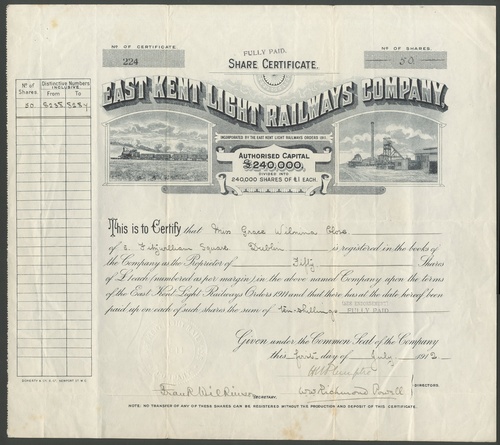 Nº OF CERTIFICATE.
224
FULLY PAID.
SHARE CERTIFICATE.
Nº OF SHARES.
50
EAST KENT LIGHT RAILWAYS COMPANY.
INCORPORATED BY THE EAST KENT LIGHT RAILWAYS ORDERS 1911.
AUTHORISED CAPITAL
£240,000,
DIVIDED INTO
240,000 SHARES OF £1 EACH.
Nº of Shares
Distinctive Numbers INCLUSIVE.
From To
50
This is to Certify that Miss Grace Wilmina Close
of 2. Fitzwilliam Square Dublin is registered in the books of
the Company as the Proprietor of Fifty Shares
of £1 each (numbered as per margin) in the above named Company upon the terms
of the East Kent Light Railways Orders 1911 and that there has at the date hereof been
paid up on each of such shares the sum of ten shillings
FULLY PAID
Given under the Common Seal of the Company
this first day of July 1912
DIRECTORS.
SECRETARY.
W R Richmond Powell
NOTE: NO TRANSFER OF ANY OF THESE SHARES CAN BE REGISTERED WITHOUT THE PRODUCTION AND DEPOSIT OF THIS CERTIFICATE.